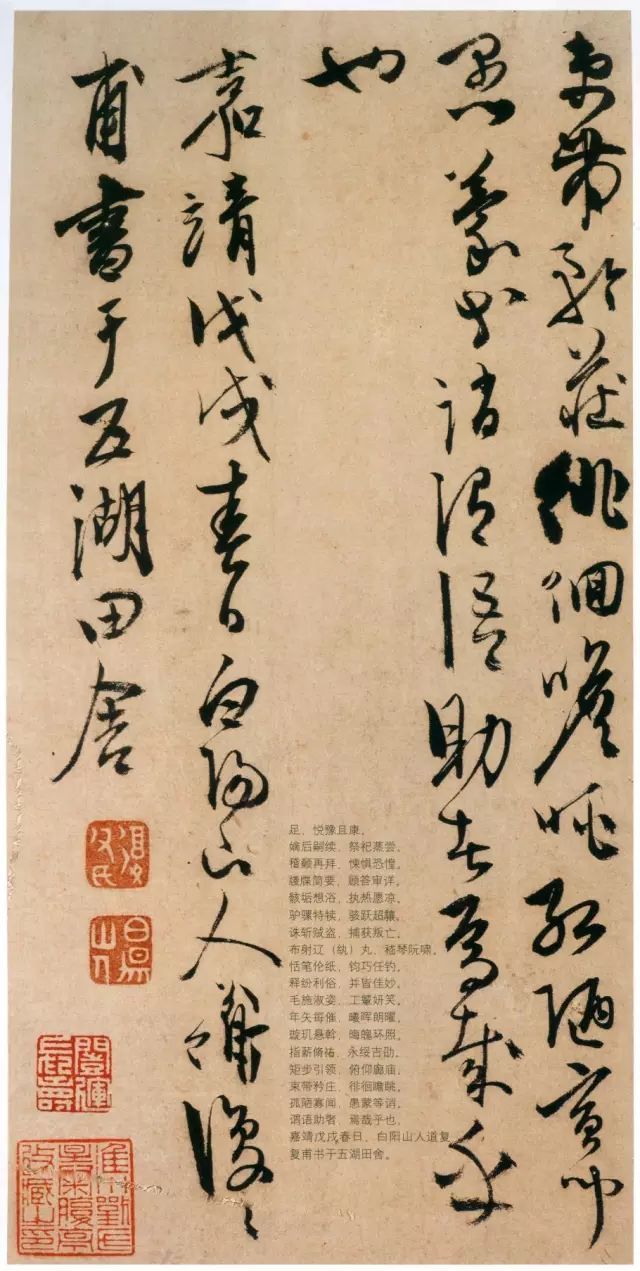 束帶矜莊徘徊瞻眺孤陋寡聞
愚蒙等誚謂語助者焉哉乎
也
嘉靖戊戌春日白陽山人道復〻
甫書于五湖田舍
足，悦豫且康。
嫡后嗣续，祭祀蒸尝。
稽颡再拜，悚惧恐惶。
牋牒简要，顾答审详。
骸垢想浴，执热愿凉。
驴骡特犊，骇跃超骧。
诛斩贼盗，捕获叛亡。
布射辽（纨）丸，嵇琴阮啸。
恬笔伦纸，钧巧任钓。
释纷利俗，并皆佳妙。
毛施淑姿，工颦妍笑。
年矢每催，曦晖朗曜。
璇玑悬斡，晦魄环照。
指薪脩祐，永绥吉劭。
矩步引领，俯仰廊庙。
束带矜庄，徘徊瞻眺。
孤陋寡闻，愚蒙等诮。
谓语助者，焉哉乎也。
嘉靖戊戌春日，白阳山人道复
复甫书于五湖田舍。
白陽山人